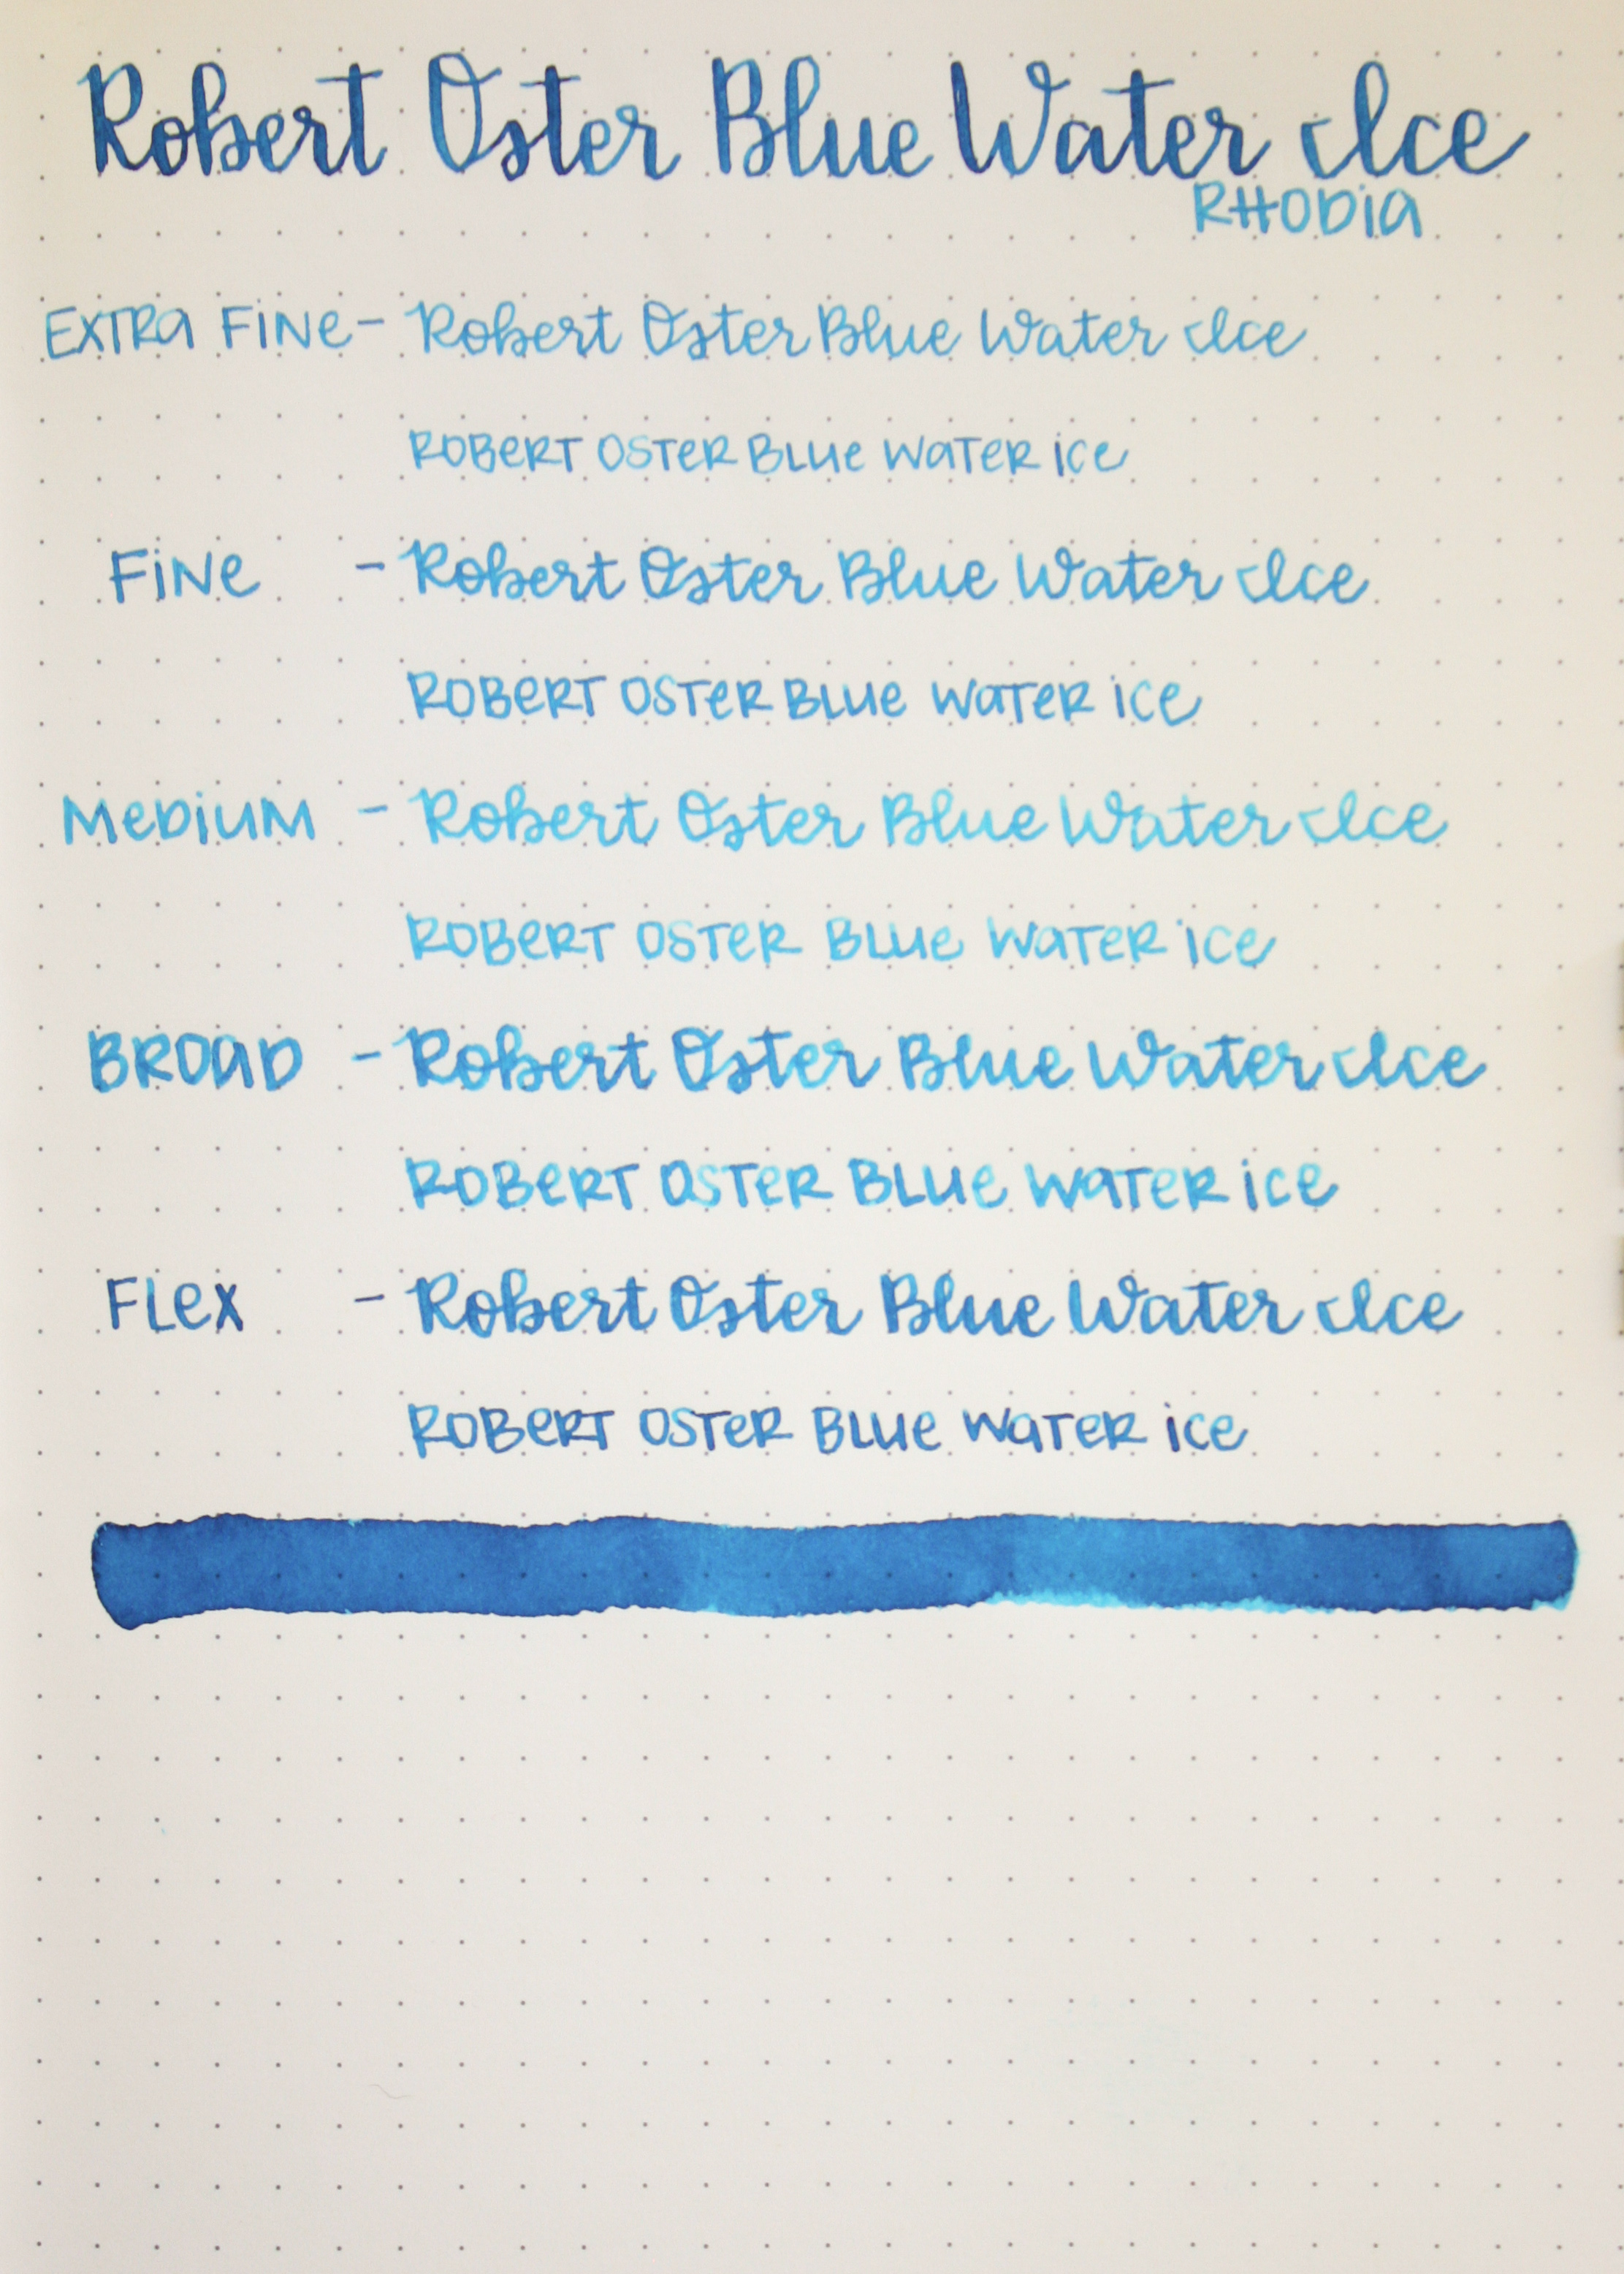 Robert Oster Blue Water Ice
RHODia
EXTRa FiNe - Robert Oster Blue Water Ice
ROBeRT OSTeR BLue WaTeR ice
FiNe - Robert Oster Blue Water Ice
ROBeRT OSTeR BLue WaTeR ice
MeDiuM - Robert Oster Blue Water Ice
ROBeRT OSTeR BLue WaTeR ice
BROaD - Robert Oster Blue Water Ice
ROBeRT OSTeR BLue WaTeR ice
FLex - Robert Oster Blue Water Ice
ROBeRT OSTeR BLue WaTeR ice